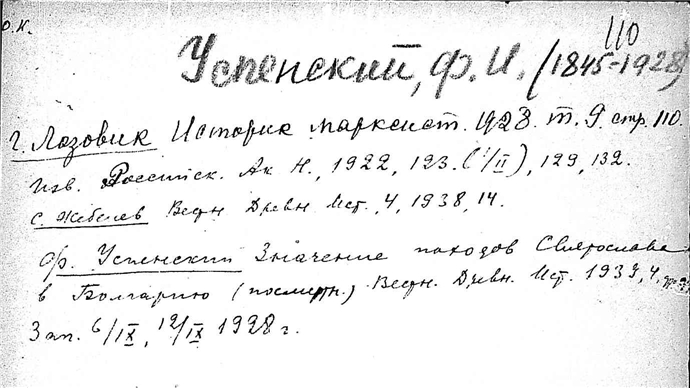 О.К.
110
Успенский, Ф. И. (1845-1928)
Г. Лозовик Историк марксист. 1928. т. 9. стр. 110.
Изв. Российск. Ак. Н., 1922, 123. (1/II), 129, 132.
С. Жебелев Вестн Древн Ист., 4, 1938, 14.
Ф. Успенский Значение походов Святослава
в Болгарию (посмертн.) Вестн. Древн. Ист. 1939, 4,
Зап. 6/IX, 12/IX 1928 г.